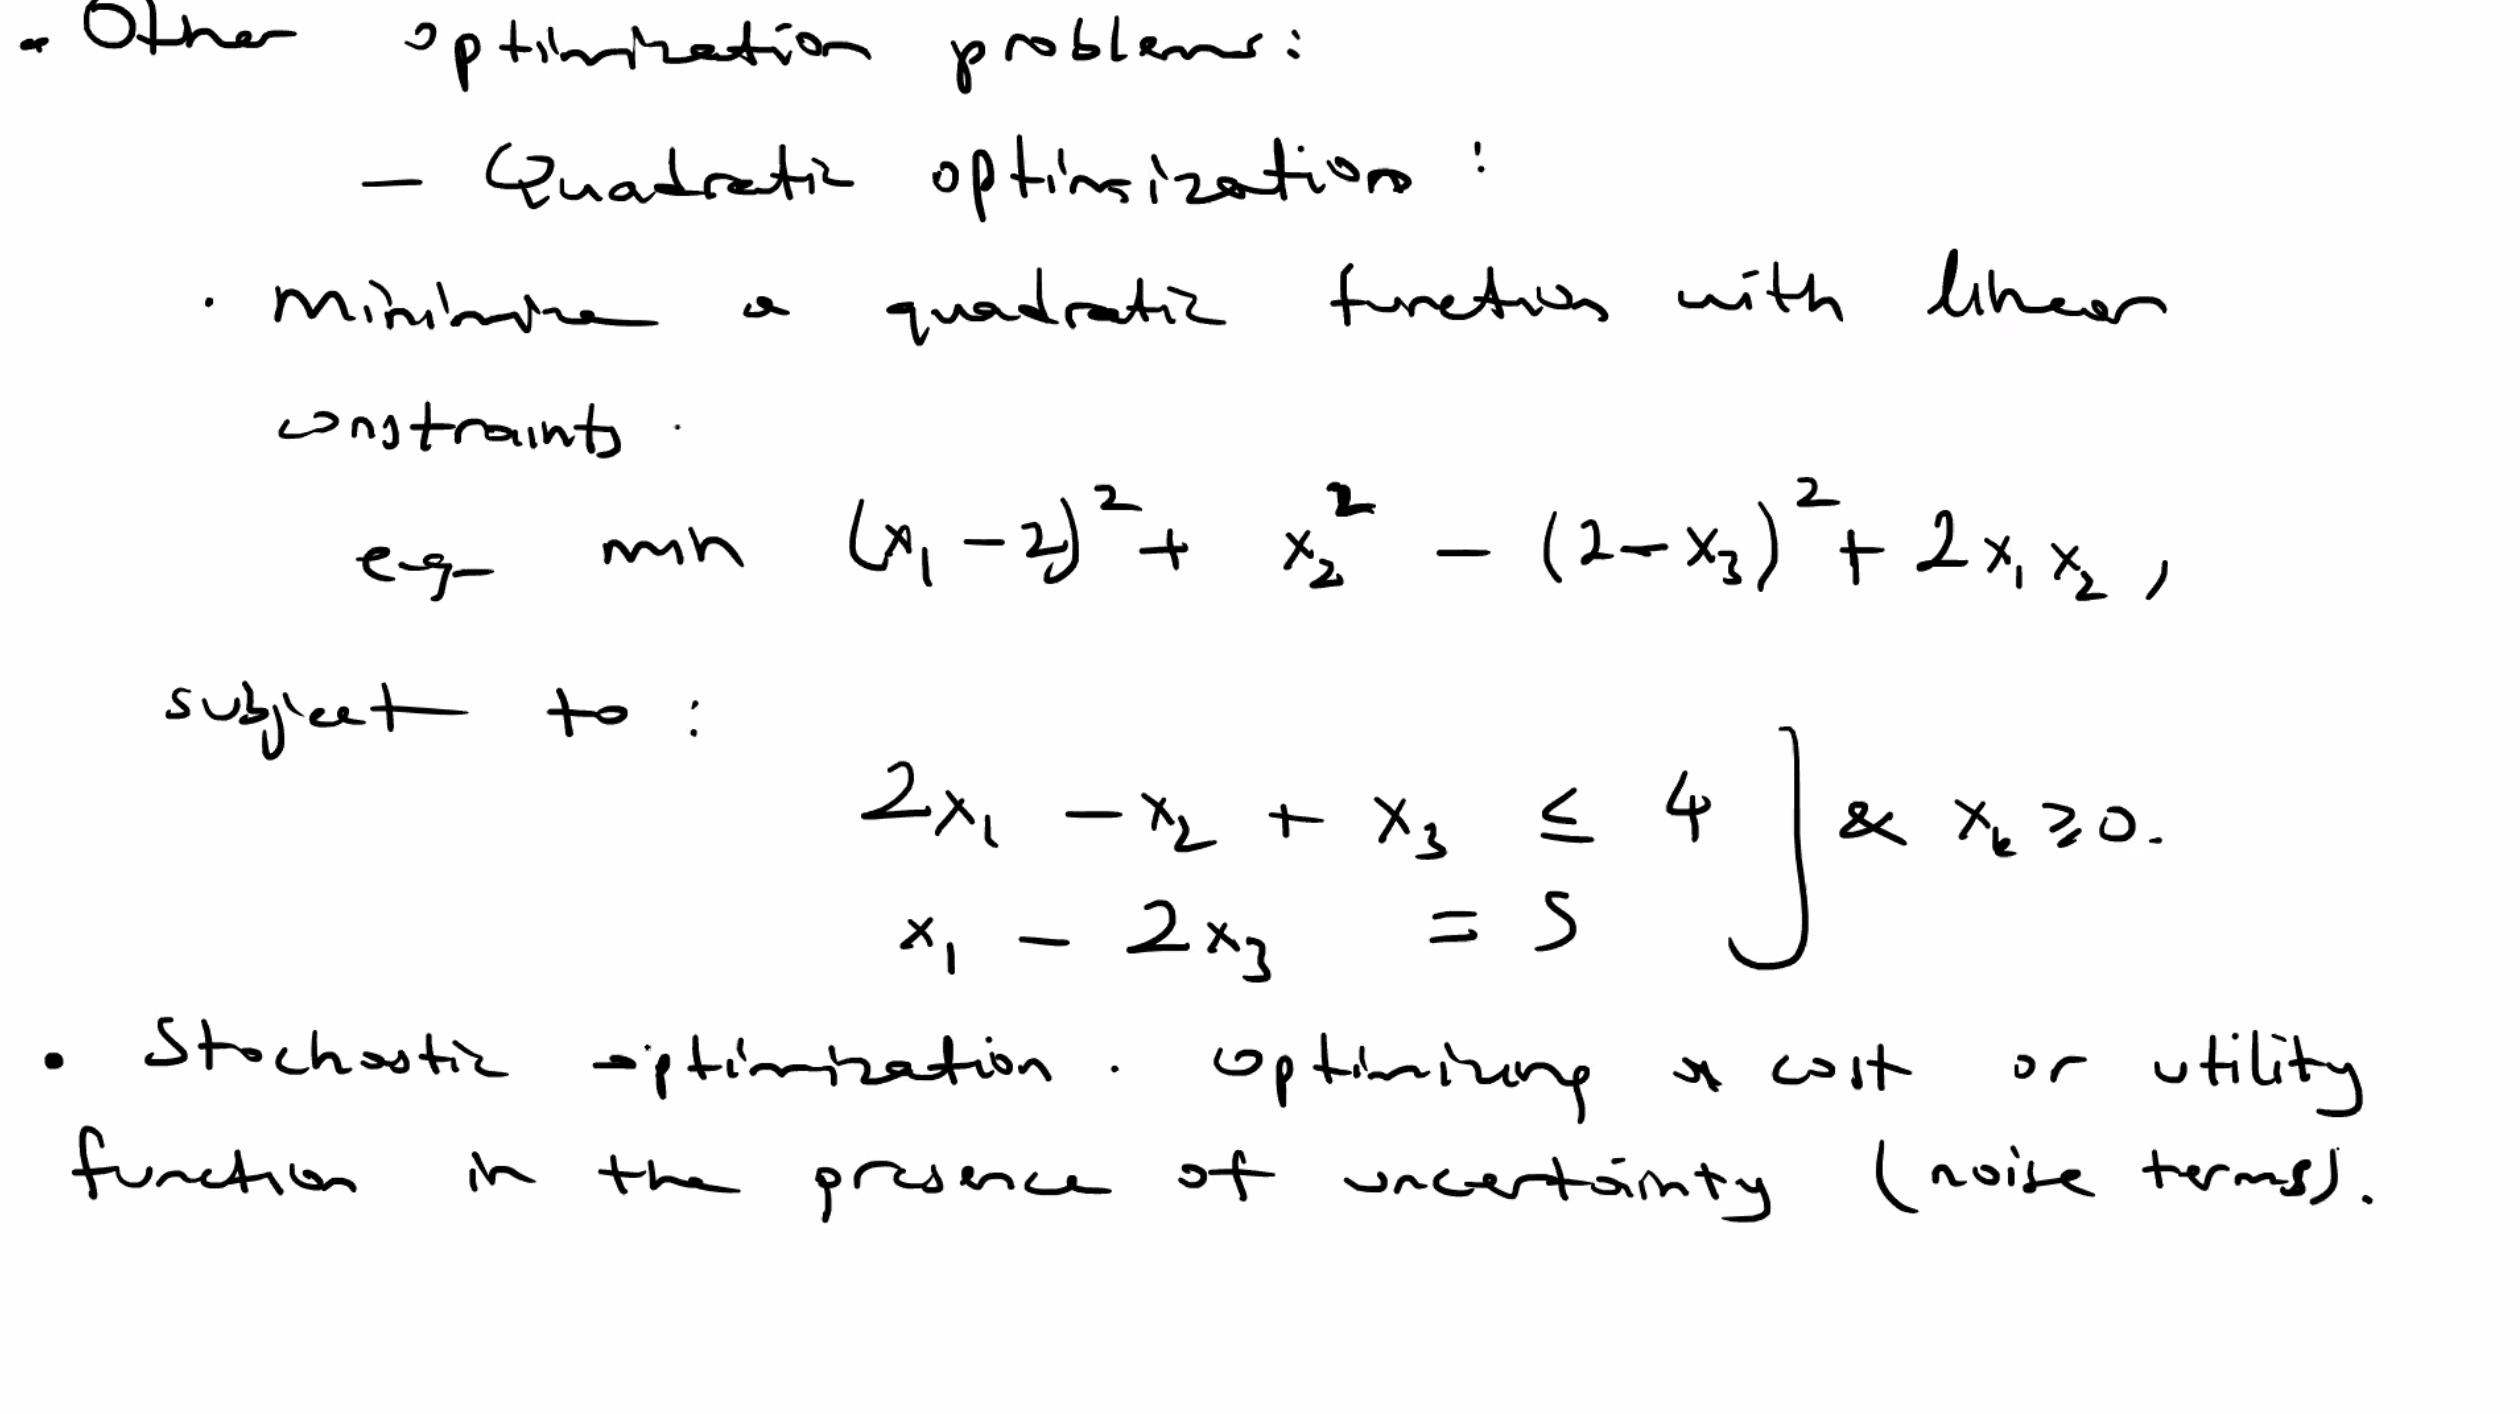 • Other optimization problems:
— Quadratic optimization:
• Minimize a quadratic function with linear
constraints.
e.g. min (x₁ - 2)² + x₂² - (2 - x₃)² + 2x₁x₂,
subject to:
2x₁ - x₂ + x₃ ≤ 4 ] & xₖ ≥ 0.
x₁ - 2x₃ = 5
• Stochastic optimization. optimizing a cost or utility
function in the presence of uncertainty (noise terms).